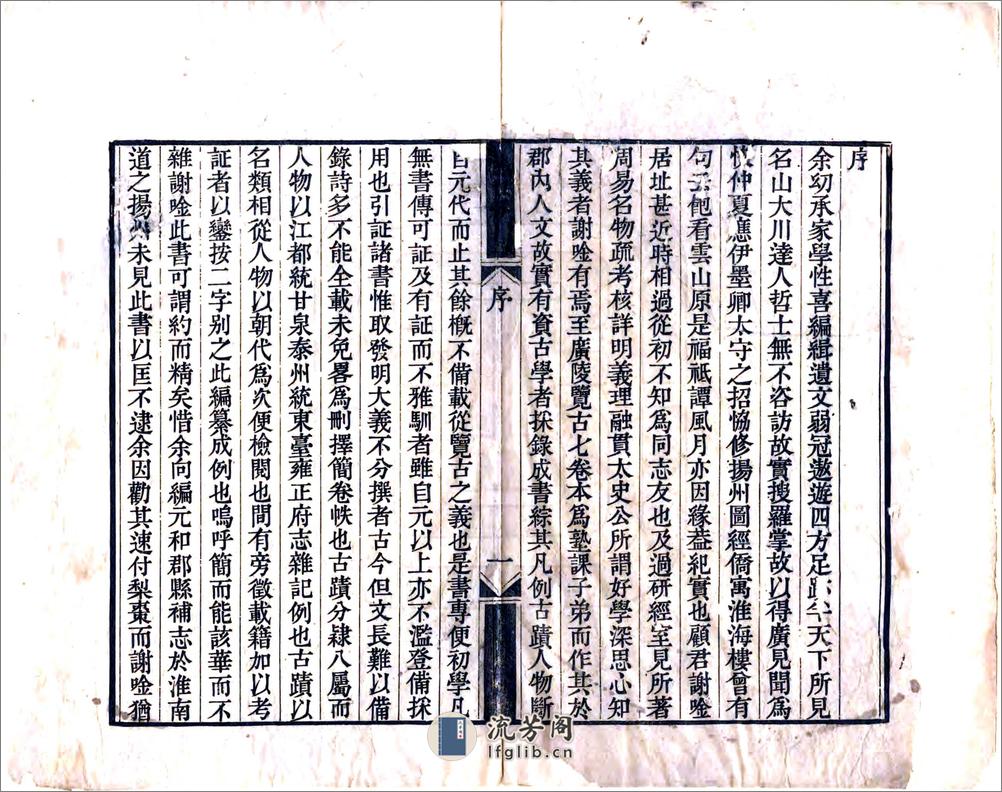 序
余幼承家學性喜編緝遺文弱冠遨遊四方足跡半天下所見
名山大川達人哲士無不咨訪故實搜羅掌故以得廣見聞爲
快仲夏應伊墨卿太守之招協修揚州圖經僑寓淮海樓會有
句云飽看雲山原是福祗譚風月亦因緣葢紀實也顧君謝唫
居址甚近時相過從初不知爲同志友也及過硏經室見所著
周易名物疏考核詳明義理融貫太史公所謂好學深思心知
其義者謝唫有焉至廣陵覽古七卷本爲塾課子弟而作其於
郡內人文故實有資古學者採錄成書綜其凡例古蹟人物斷
序
一
自元代而止其餘槪不備載從覽古之義也是書專便初學凡
無書傳可証及有証而不雅馴者雖自元以上亦不濫登備採
用也引証諸書惟取發明大義不分撰者古今但文長難以備
錄詩多不能全載未免畧爲刪擇簡卷帙也古蹟分隸八屬而
人物以江都統甘泉泰州統東臺雍正府志雜記例也古蹟以
名類相從人物以朝代爲次便檢閱也間有旁徵載籍加以考
証者以鑾按二字别之此編纂成例也嗚呼簡而能該華而不
雜謝唫此書可謂約而精矣惜余向編元和郡縣補志於淮南
道之揚州未見此書以匡不逮余因勸其速付梨棗而謝唫猶
流芳阁
lfglib.cn